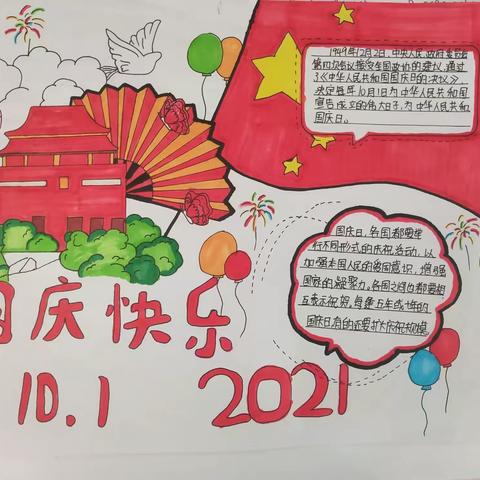 1949年12月2日,中央人民政府委员会
第四次会议接受全国政协的建议,通过
了《中华人民共和国国庆日的决议》,
决定每年10月1日为中华人民共和国
宣告成立的伟大日子,为中华人民共和
国庆日。
国庆日,各国都要举
行不同形式的庆祝活动,以
加强本国人民的爱国意识,增强
国家的凝聚力。各国之间也都要相
互表示祝贺,每逢五年或十年的
国庆日,有的还要扩大庆祝规模
国庆快乐
10.1
2021